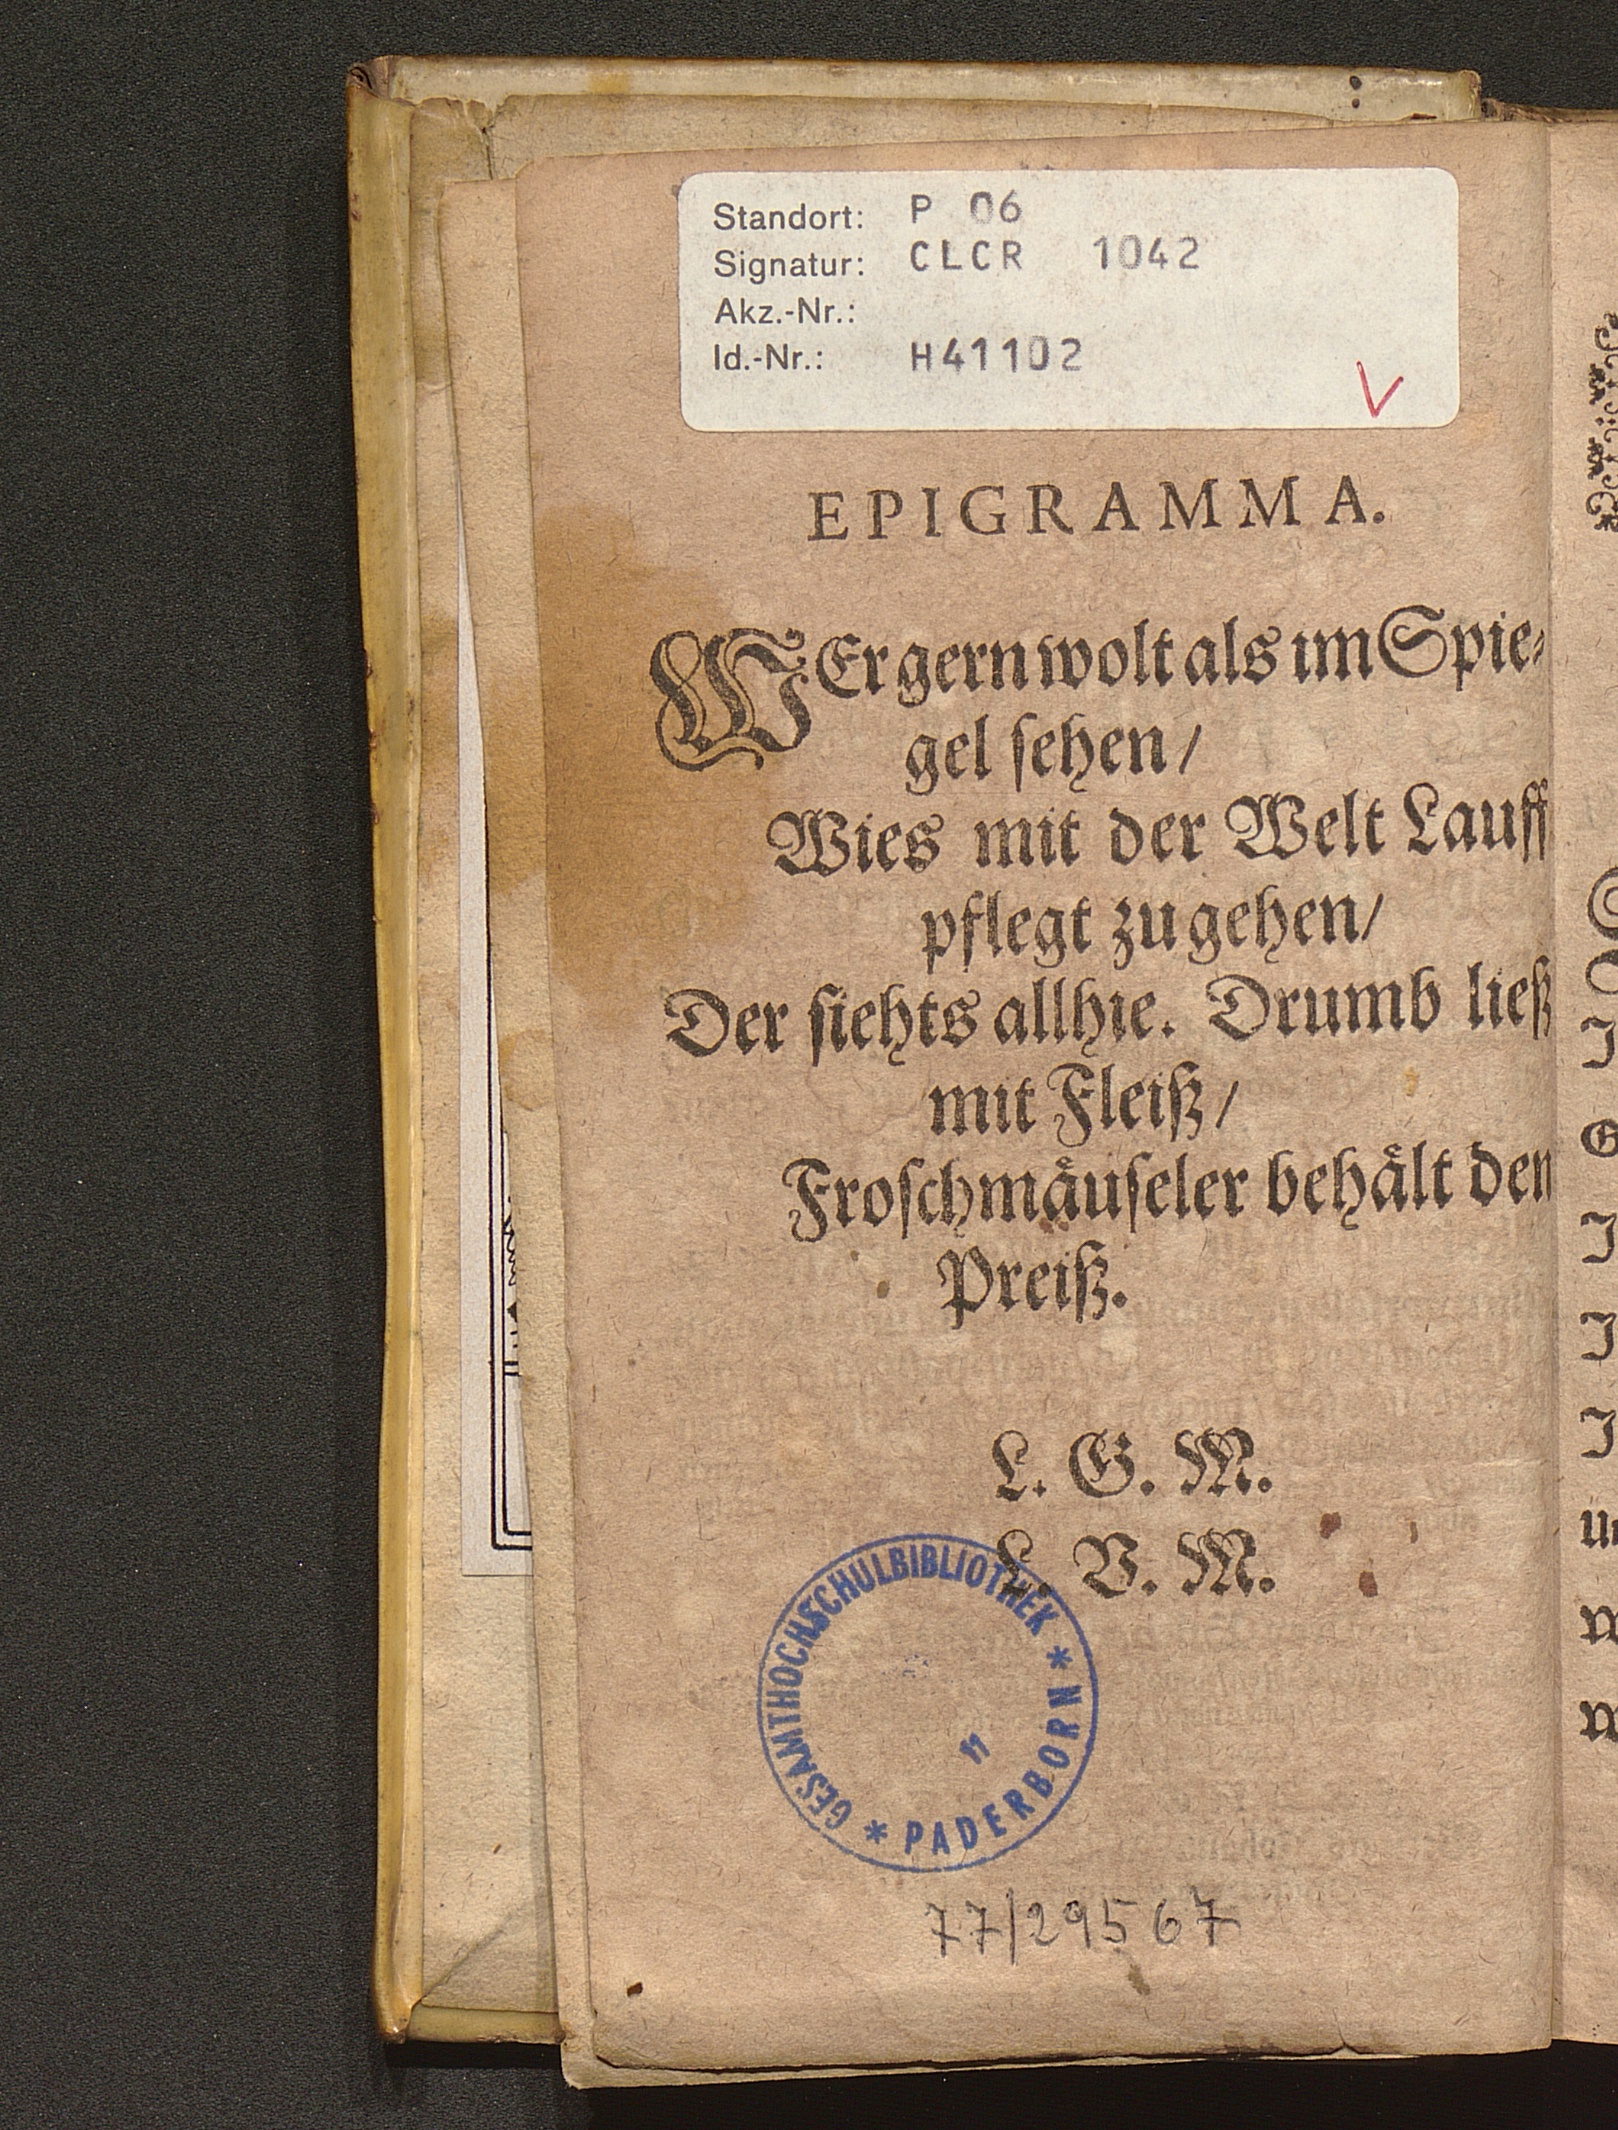 Standort: P 06
Signatur: CLCR 1042
Akz.-Nr.:
Id.-Nr.: H41102
EPIGRAMMA.
WEr gern wolt als im Spie⸗
gel ſehen/
Wies mit der Welt Lauff
pflegt zu gehen/
Der ſiehts allhie. Drumb ließ
mit Fleiß/
Froſchmaͤuſeler behaͤlt den
Preiß.
L. G. M.
L. V. M.
GESAMTHOCHSCHULBIBLIOTHEK * PADERBORN *
77/29567